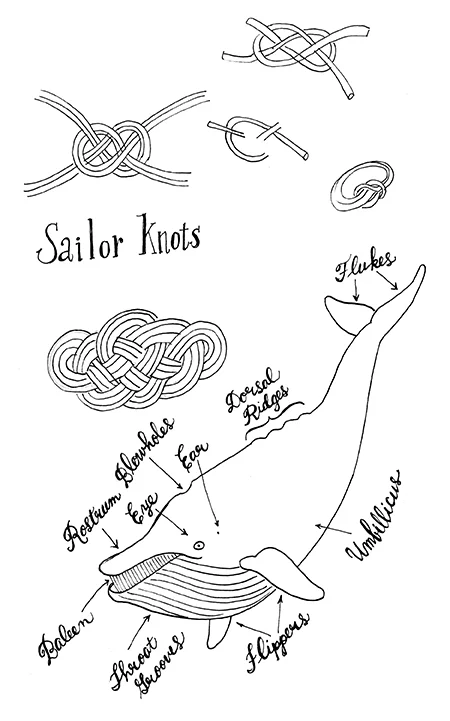 Sailor Knots
Flukes
Dorsal
Ridges
Blowholes
Ear
Rostrum
Eye
Umbillicus
Baleen
Throat
Grooves
Flippers